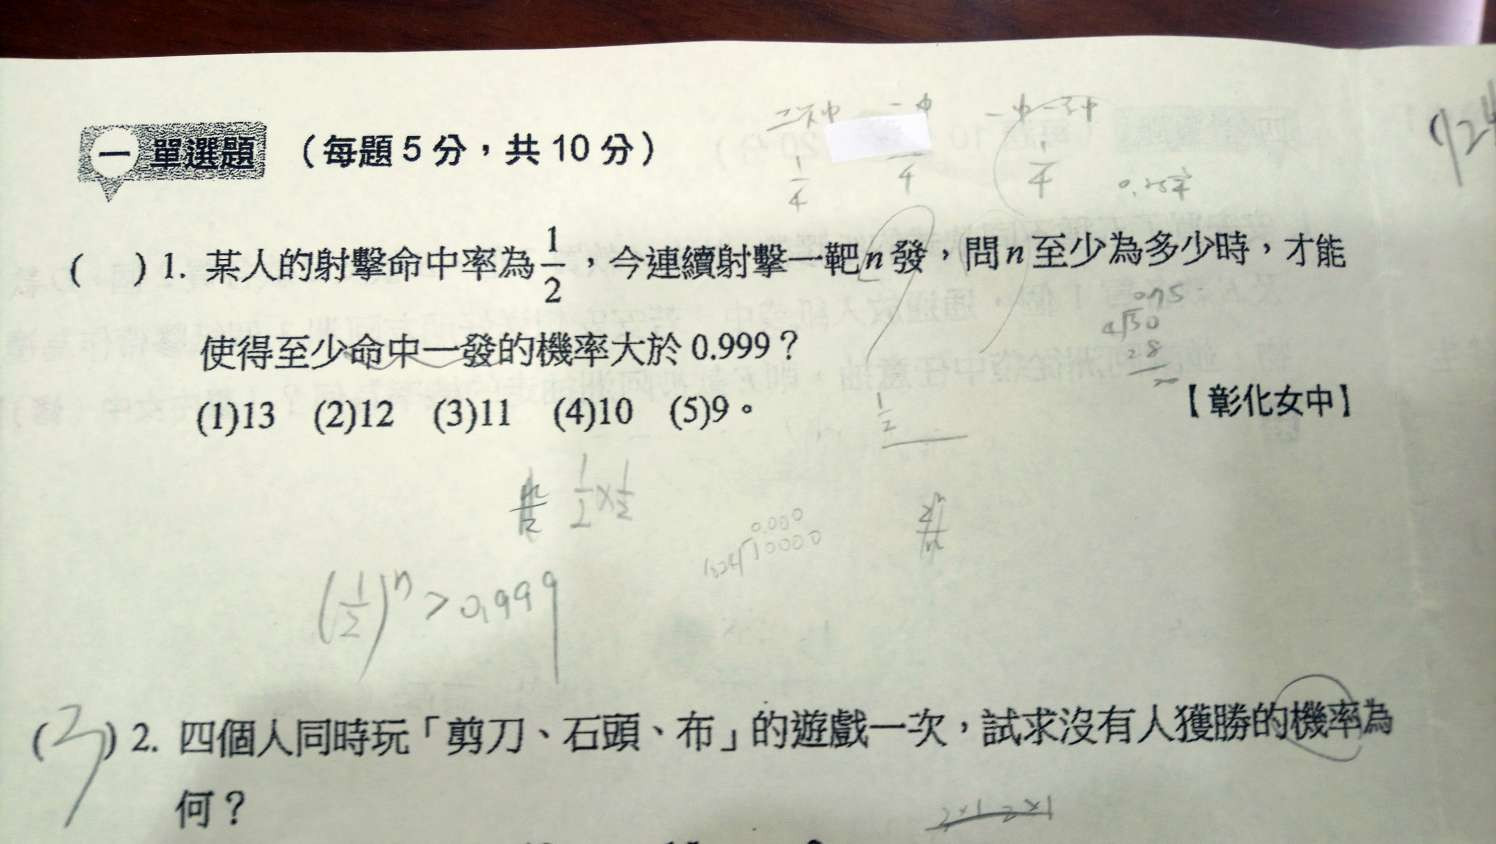 924
二次中 一中 一中一不中
1/4 4 1/4 0.25
一 單選題 (每題5分,共10分)
( ) 1. 某人的射擊命中率為1/2,今連續射擊一靶n發,問n至少為多少時,才能
使得至少命中一發的機率大於 0.999?
0.75
4 30
28
(1)13 (2)12 (3)11 (4)10 (5)9。
【彰化女中】
1/2
1/2×1/2
0.000
1024 10000
(1/2)ⁿ>0.999
(3) 2. 四個人同時玩「剪刀、石頭、布」的遊戲一次,試求沒有人獲勝的機率為
何?
2×1 2×1